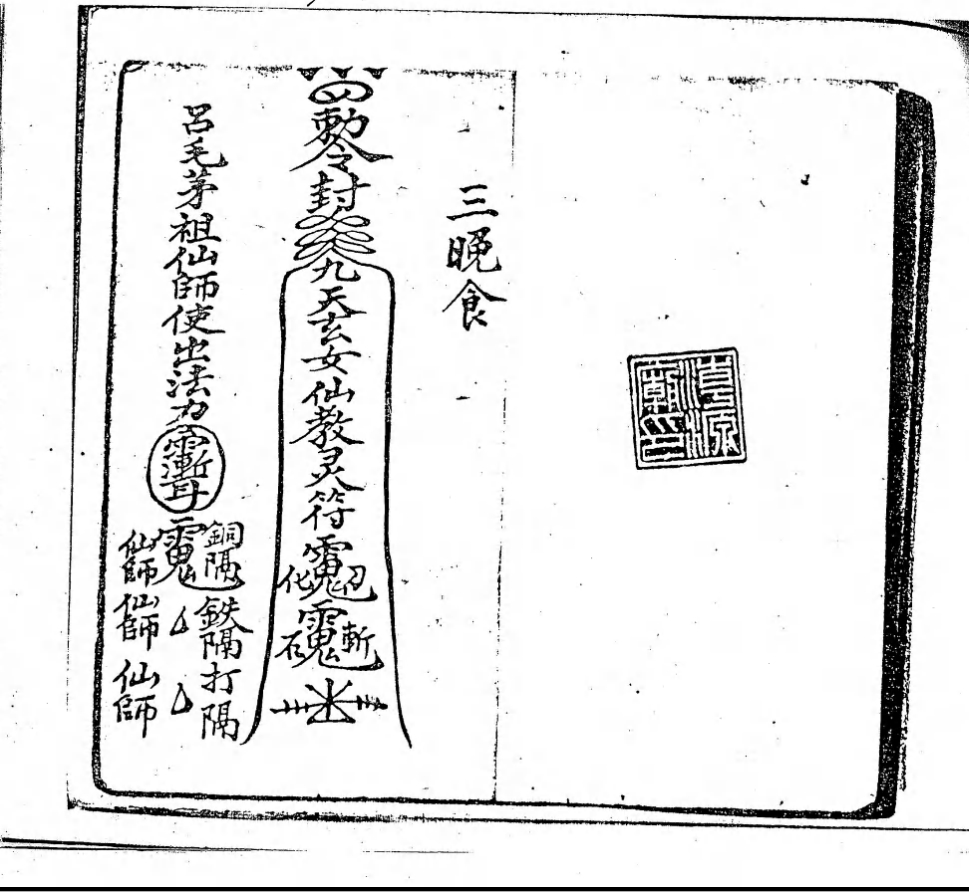 三晚食
勅令封
九天玄女仙教灵符
化 印
石 斬
呂毛茅祖仙師使出法力
銅隔 鉄隔打隔
仙師 仙師 仙師